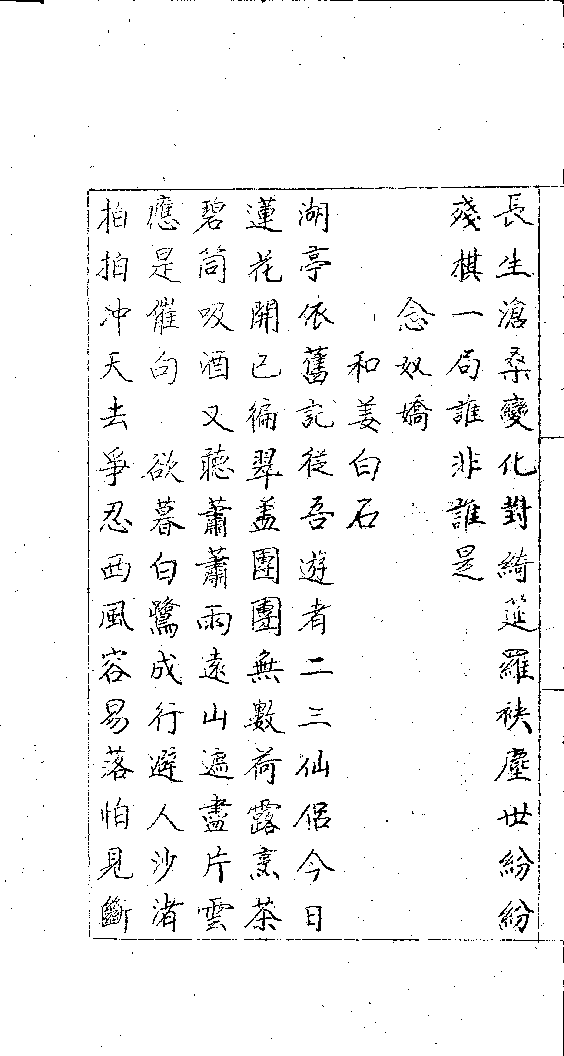 長生滄桑變化對綺筵羅袂塵世紛紛
殘棋一局誰非誰是
念奴嬌
和姜白石
湖亭依舊記從吾遊者二三仙侶今日
蓮花開已徧翠盖團團無數荷露烹茶
碧筒吸酒又聽蕭蕭雨遠山遮盡片雲
應是催句　欲暮白鷺成行避人沙渚
拍拍冲天去爭忍西風容易落怕見斷